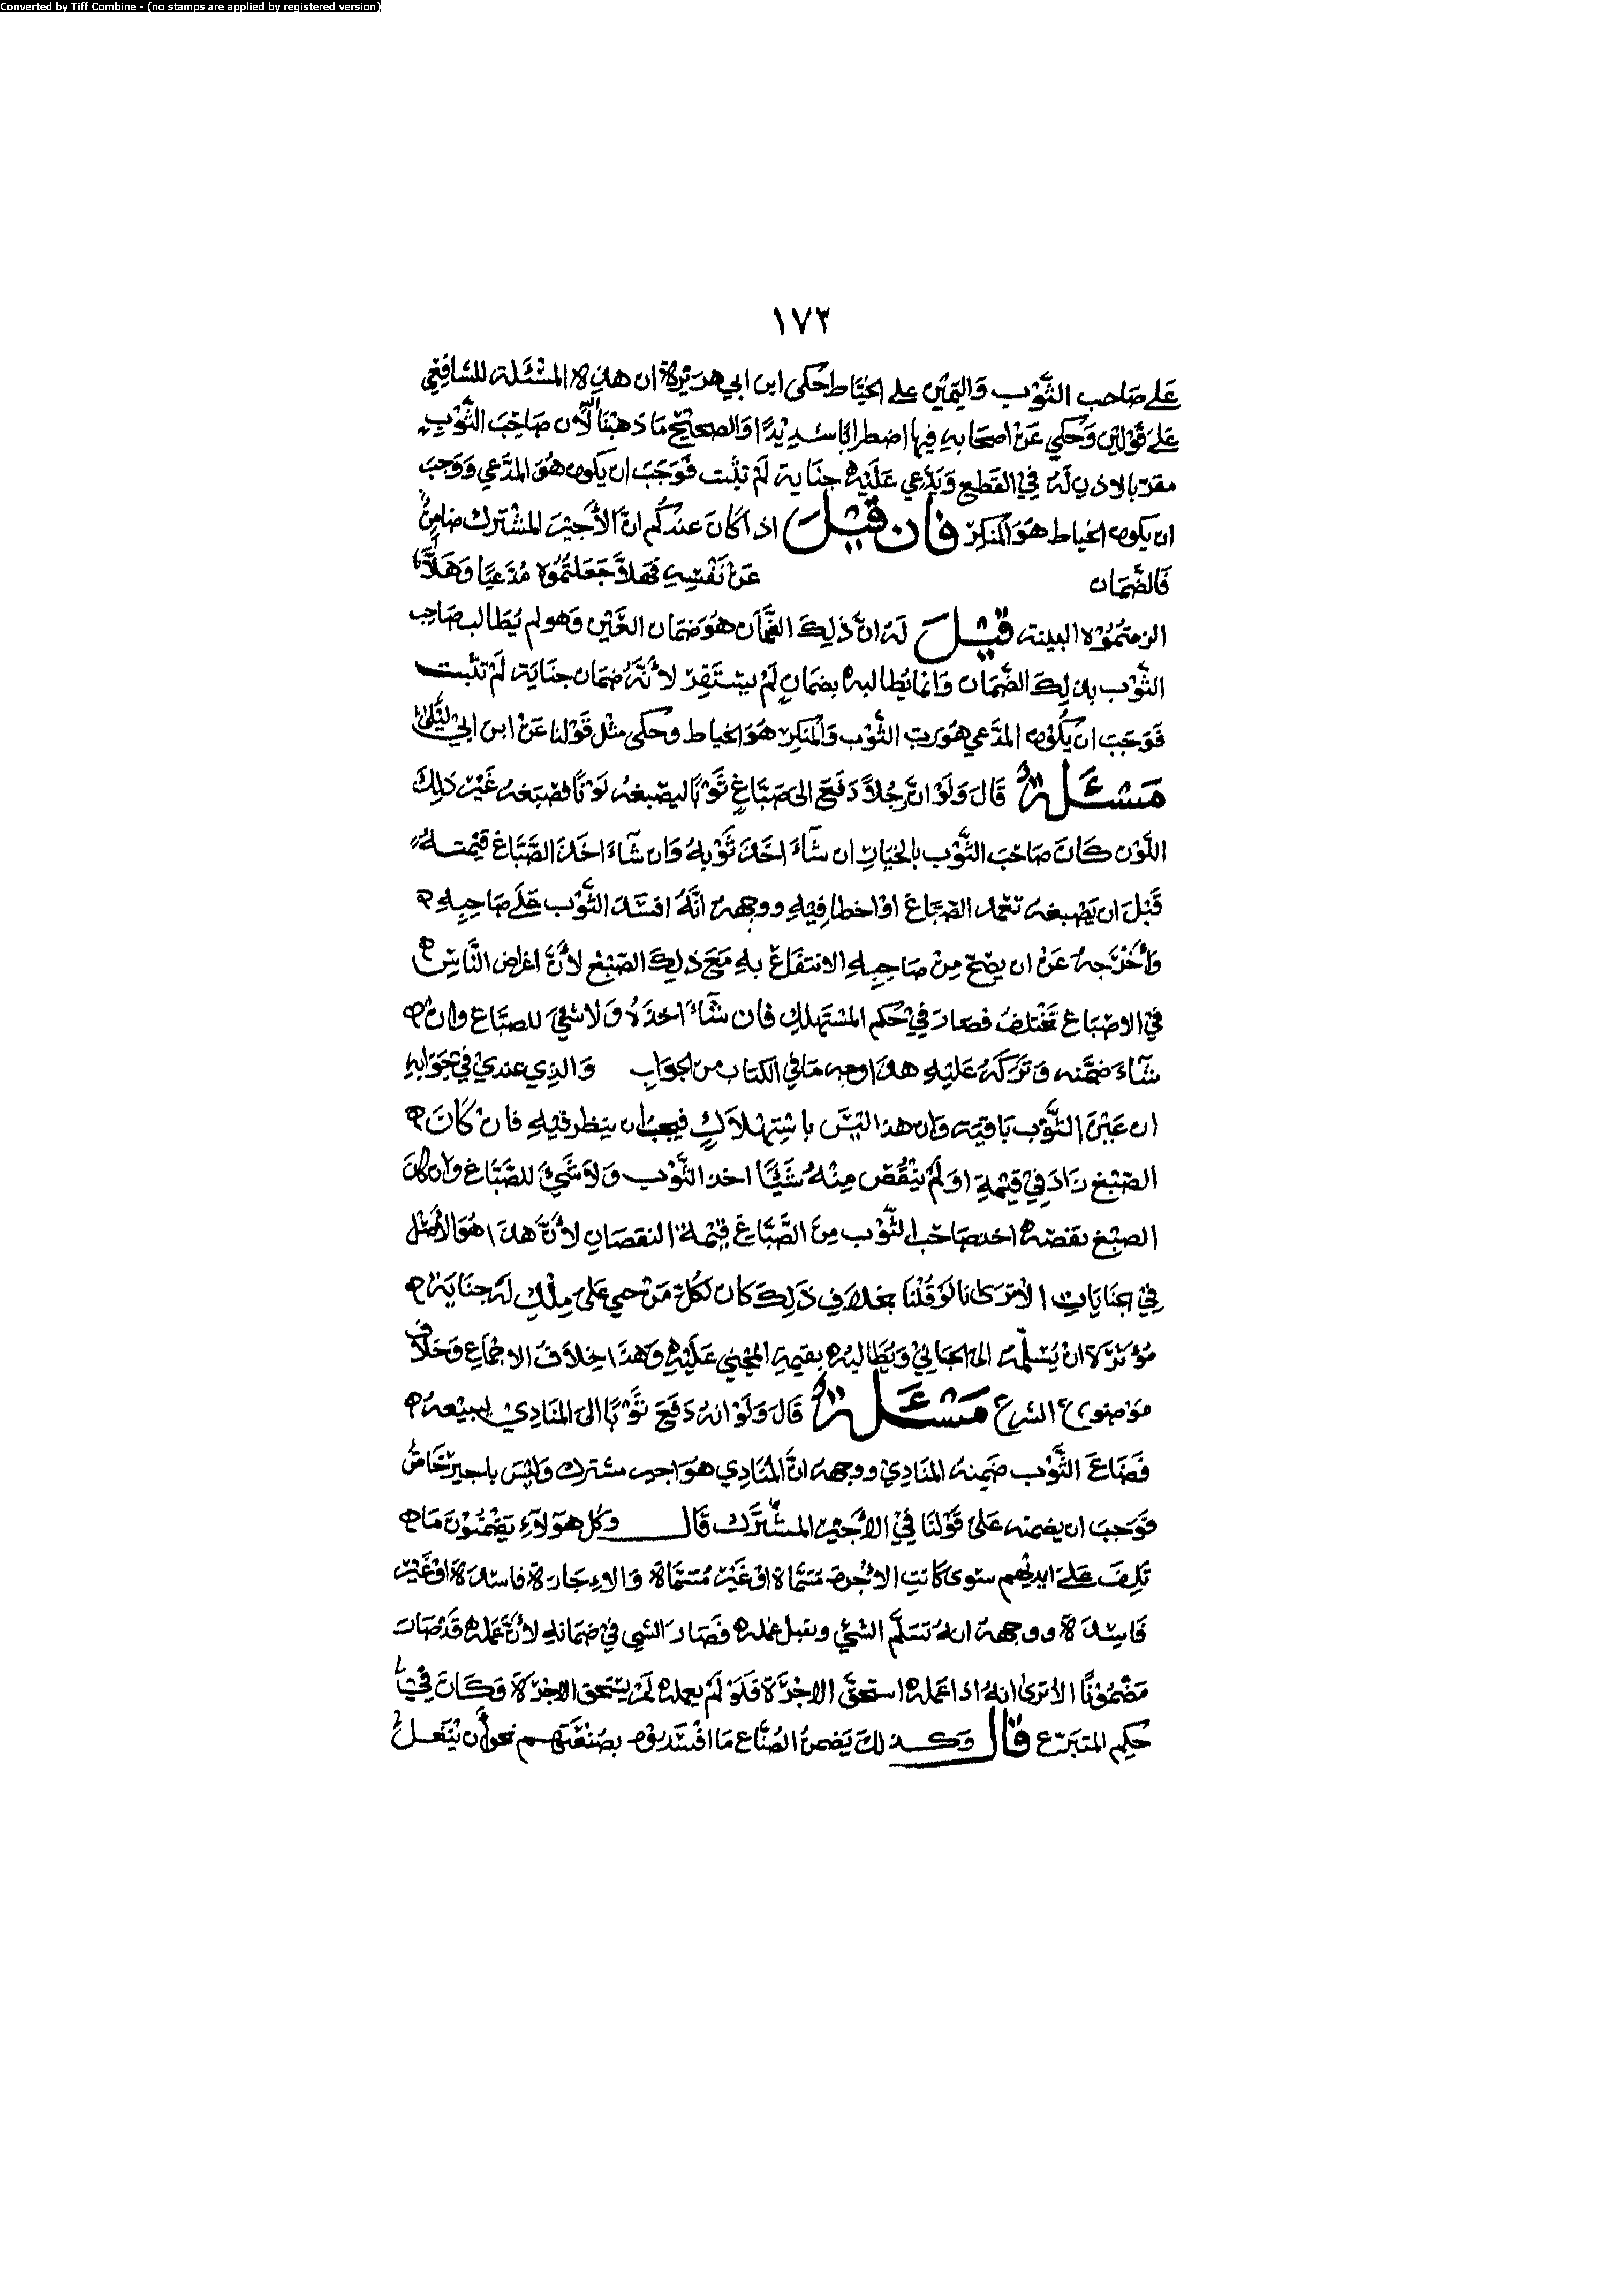 Converted by Tiff Combine - (no stamps are applied by registered version)
١٧٢
عَلى صَاحب الثَّوْب وَاليَمِيْن على الخيَّاط حُكى ابن ابي هريْرة ان هذه المسْئَلة للشافِعِي
عَلى قَوْلين وَحُكي عَنْ اصحَابه فِيها اضطرابًا شدِيْدًا وَالصحيْح مَا ذهبْنَا اليه لأن صَاحِبَ الثَّوْبِ
مقرّ بالاذن لَهُ فِي القَطع وَيَدَّعي عَلَيْه جنَاية لَمْ تثبت فَوَجَبَ ان يكون هُوَ المدَّعي وَوَجَبَ
ان يكون الخياط هُوَ المنكِرُ فَان قيْلَ اذا كَانَ عندكُم انَّ الأَجيْرَ المشْتَرك ضامِنٌ
فَالضَّمَان عَنْ نَفْسِهِ فَهلاَّ جَعَلتُمُوه مُدَّعيًا وَهَلاَّ
الزمتُمُوْه البينة قيْلَ لَهُ انَّ ذلِكَ الضَّمَان هُوَ ضمَان الغَيْن وَهو لم يُطَالب صَاحِب
الثَّوْب بذلِكَ الضَّمَان وَانما يُطالبه بضمَانٍ لَمْ يستَقِرّ لأنَّهُ ضمَان جنَاية لَمْ تثبت
فَوَجَبَ ان يَكُون المدَّعي هُوَ رب الثَّوْب وَالمُنكِرُ هُوَ الخياط وحكى مثْل قَوْلنا عَنْ ابن ابي ليْلى
مَسْئَلَةٌ قَالَ وَلَوْ انَّ رَجُلاً دَفَعَ الى صَبَّاغٍ ثَوْبًا ليصْبغهُ لَوْنًا فصَبَغهُ غَيْرَ ذلِكَ
اللَّوْن كَانَ صَاحبَ الثَّوْب بالخيَار ان شآءَ اخَذَ ثَوْبهُ وَان شآءَ اخَذَ الصَّبَّاغ قيْمتهُ
قَبْلَ ان يَصْبغهُ تعمد الصَّبَّاغ اوْ اخطا فِيْهِ ووجههُ انَّهُ افسَدَ الثَّوْب عَلَى صَاحِبِهِ
وَأخْرَجهُ عَنْ ان يصحّ مِنْ صَاحِبِهِ الانتفَاع بهِ مَعَ ذلِكَ الصّبْغ لأنَّ اغراض النَّاسِ
فِي الاصْبَاغ تَخْتلِفُ فصَارَ فِيْ حكم المسْتهلكِ فان شآءَ اخذَهُ وَلا شيْ للصبَّاغ وان
شآءَ ضمَّنه وَتَرَكَهُ عَلَيْهِ هذا وجه مَا في الكتاب من الجوَاب وَالذِي عندي فِيْ جَوَابِهِ
ان عَيْنَ الثَّوْب بَاقيَة وَان هذا ليْسَ باسْتِهْلاَكٍ فيجب ان ينظر فيْهِ فان كَانَ
الصّبْغ زادَ فِيْ قيْمتهِ اوَ لَمْ يَنْقُصْ مِنْهُ شَيْئًا اخذ الثَّوْب وَلاَ شَيْءَ للصَّبَّاغ وان كانَ
الصبْغ نقصَهُ اخذ صَاحب الثَّوْب مِنَ الصَّبَّاغ قِيْمة النقصَان لأنَّ هذَا هُوَ الأصْل
فِيْ الجنَايَات الا ترَى انا لَوْ قُلْنَا بخلاَفِ ذَلِكَ كان لكُلّ مَنْ جنى عَلى مِلْكٍ لَهُ جنَايَةً
مُؤَثرَة انْ يُسَلّمهُ الى الجَانِيْ وَيُطَالبهُ بقيمة المجْني عَلَيْهِ وَهَذا خِلاَفُ الاجْمَاع وَخلاَف
مَوْضوع الشرع مَسْئَلَةٌ قَالَ وَلَوْ انهُ دَفَعَ ثَوْبًا الى المنَادِيْ لِيبيْعهُ
فَضَاعَ الثَّوْب ضَمِنهُ المنَادِيْ ووجههُ انَّ المُنَادِي هُوَ اجير مشترك وَليْسَ باجيْر خَاصٌ
فَوَجَبَ ان يضمنه عَلى قَوْلنَا فِيْ الأَجيْر المشْتَرَك قَالَ وَكُل هَؤلآءِ يَضْمَنُوْنَ مَا
تَلِفَ عَلى ايديْهم سَوى كانَتِ الاجُرة مُسَمَّاة اوْ غَيْرَ مُسَمَّاة وَالاِجَارَة فَاسدَة اوْ غَيْرَ
فَاسِدَة ووجههُ انهُ تسَلَّمَ الشيْ وتقبل عمله فَصَارَ الشي فِيْ ضمَانهِ لأنَّ عَملهُ قَدْ صَارَ
مَضْمُوْنًا الا ترى انهُ اذا عَملهُ استحقَّ الاجْرَة فَلَوْ لَمْ يعملهُ لَمْ يسْتَحق الاجْرَة وَكَانَ فِيْ
حُكِم المتبَرّع قَالَ وَكذلكَ يَضمنُ الصُنَّاع مَا افْسَدُوْهُ بصُنْعَتهم نحو ان ينْغلَ